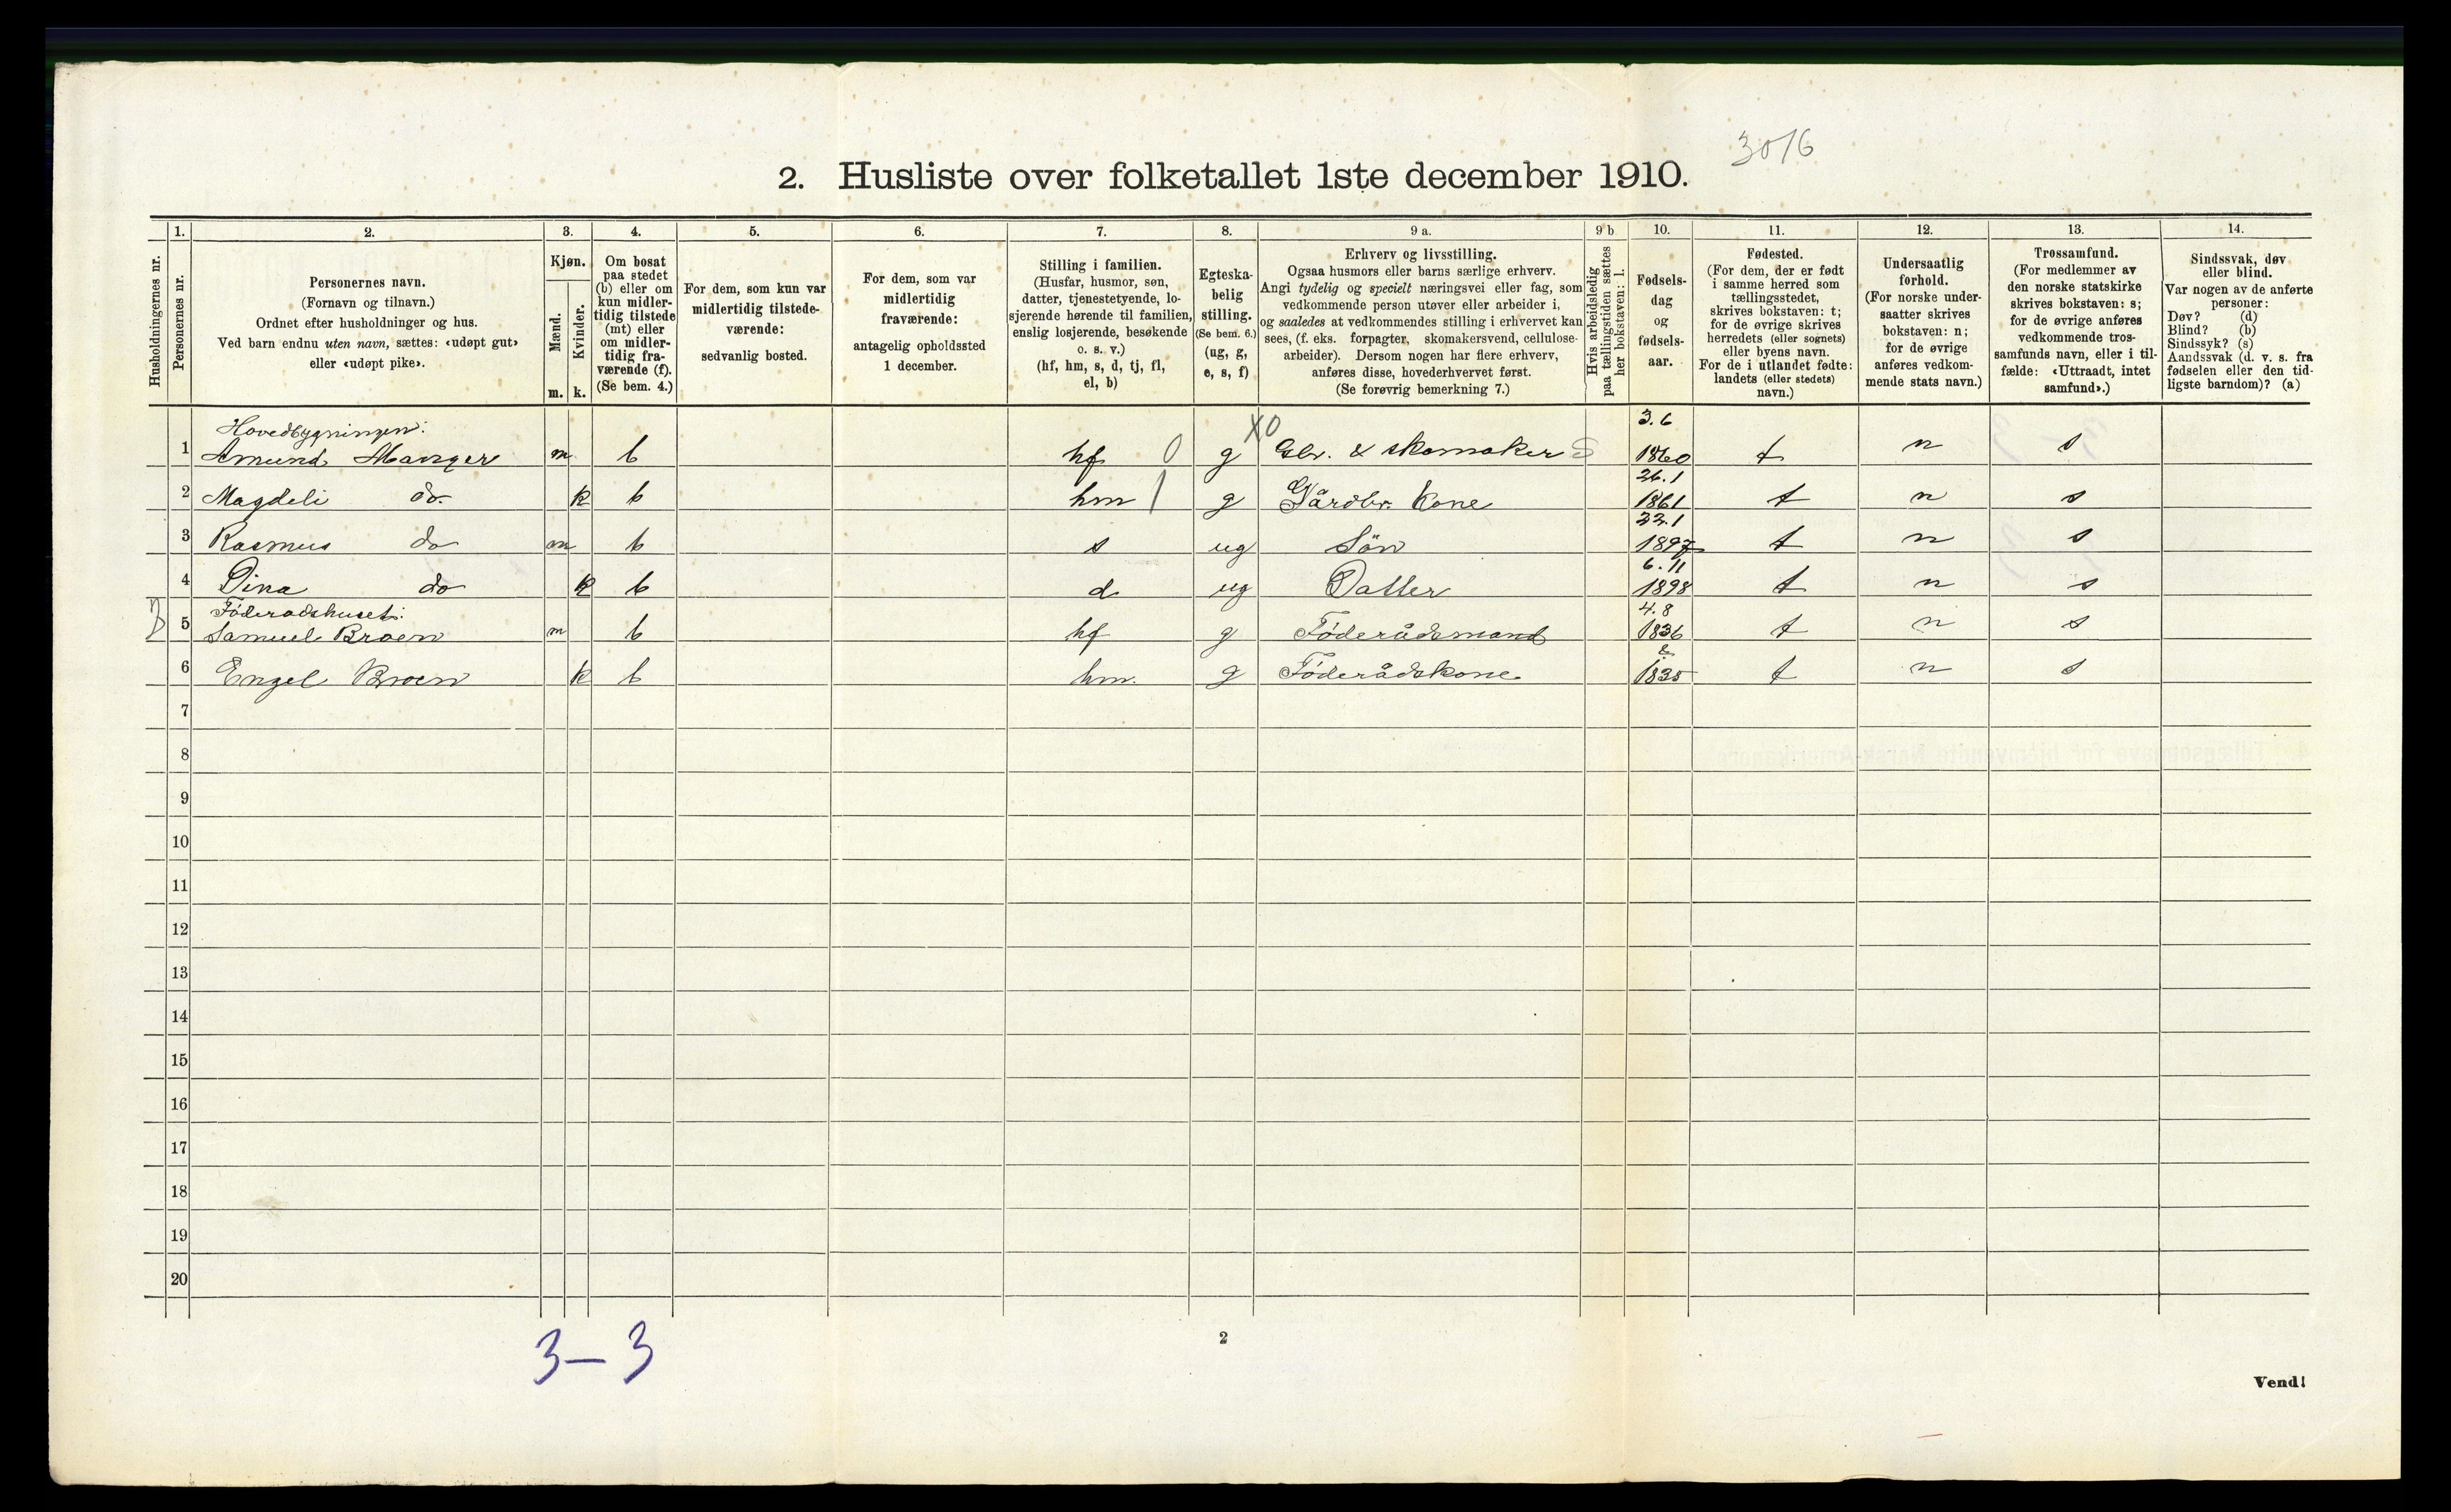 3016
2. Husliste over folketallet 1ste december 1910.
Husholdningernes nr.
1.
Personernes nr.
2.
Personernes navn.
(Fornavn og tilnavn.)
Ordnet efter husholdninger og hus.
Ved barn endnu uten navn, sættes: «udøpt gut»
eller «udøpt pike».
3.
Kjøn.
Mænd.
m.
Kvinder.
k.
4.
Om bosat
paa stedet
(b) eller om
kun midler-
tidig tilstede
(mt) eller
om midler-
tidig fra-
værende (f).
(Se bem. 4.)
5.
For dem, som kun var
midlertidig tilstede-
værende:
sedvanlig bosted.
6.
For dem, som var
midlertidig
fraværende:
antagelig opholdssted
1 december.
7.
Stilling i familien.
(Husfar, husmor, søn,
datter, tjenestetyende, lo-
sjerende hørende til familien,
enslig losjerende, besøkende
o. s. v.)
(hf, hm, s, d, tj, fl,
el, b)
8.
Egteska-
belig
stilling.
(Se bem. 6.)
(ug, g,
e, s, f)
9 a.
Erhverv og livsstilling.
Ogsaa husmors eller barns særlige erhverv.
Angi tydelig og specielt næringsvei eller fag, som
vedkommende person utøver eller arbeider i,
og saaledes at vedkommendes stilling i erhvervet kan
sees, (f. eks. forpagter, skomakersvend, cellulose-
arbeider). Dersom nogen har flere erhverv,
anføres disse, hovederhvervet først.
(Se forøvrig bemerkning 7.)
9 b
Hvis arbeidsledig
paa tællingstiden sættes
her bokstaven: l.
10.
Fødsels-
dag
og
fødsels-
aar.
11.
Fødested.
(For dem, der er født
i samme herred som
tællingsstedet,
skrives bokstaven: t;
for de øvrige skrives
herredets (eller sognets)
eller byens navn.
For de i utlandet fødte:
landets (eller stedets)
navn.)
12.
Undersaatlig
forhold.
(For norske under-
saatter skrives
bokstaven: n;
for de øvrige
anføres vedkom-
mende stats navn.)
13.
Trossamfund.
(For medlemmer av
den norske statskirke
skrives bokstaven: s;
for de øvrige anføres
vedkommende tros-
samfunds navn, eller i til-
fælde: «Uttraadt, intet
samfund».)
14.
Sindssvak, døv
eller blind.
Var nogen av de anførte
personer:
Døv? (d)
Blind? (b)
Sindssyk? (s)
Aandssvak (d. v. s. fra
fødselen eller den tid-
ligste barndom)? (a)
Hovedbygningen:
1 Amund Manger m b hf 0 g X0 Gbr. & skomaker S 3.6 1860 t n s
2 Magdeli do. k b hm 1 g Gårdbr. Kone 26.1 1861 t n s
3 Rasmus do m b s ug Sön 22.1 1897 t n s
4 Dina do k b d ug Datter 6.11 1898 t n s
Föderådshuset:
5 Samuel Broen m b hf g Föderådsmand 4.8 1836 t n s
6 Engel Broen k b hm. g Föderådskone 1835 t n s
7
8
9
10
11
12
13
14
15
16
17
18
19
20
3–3
2
Vend!